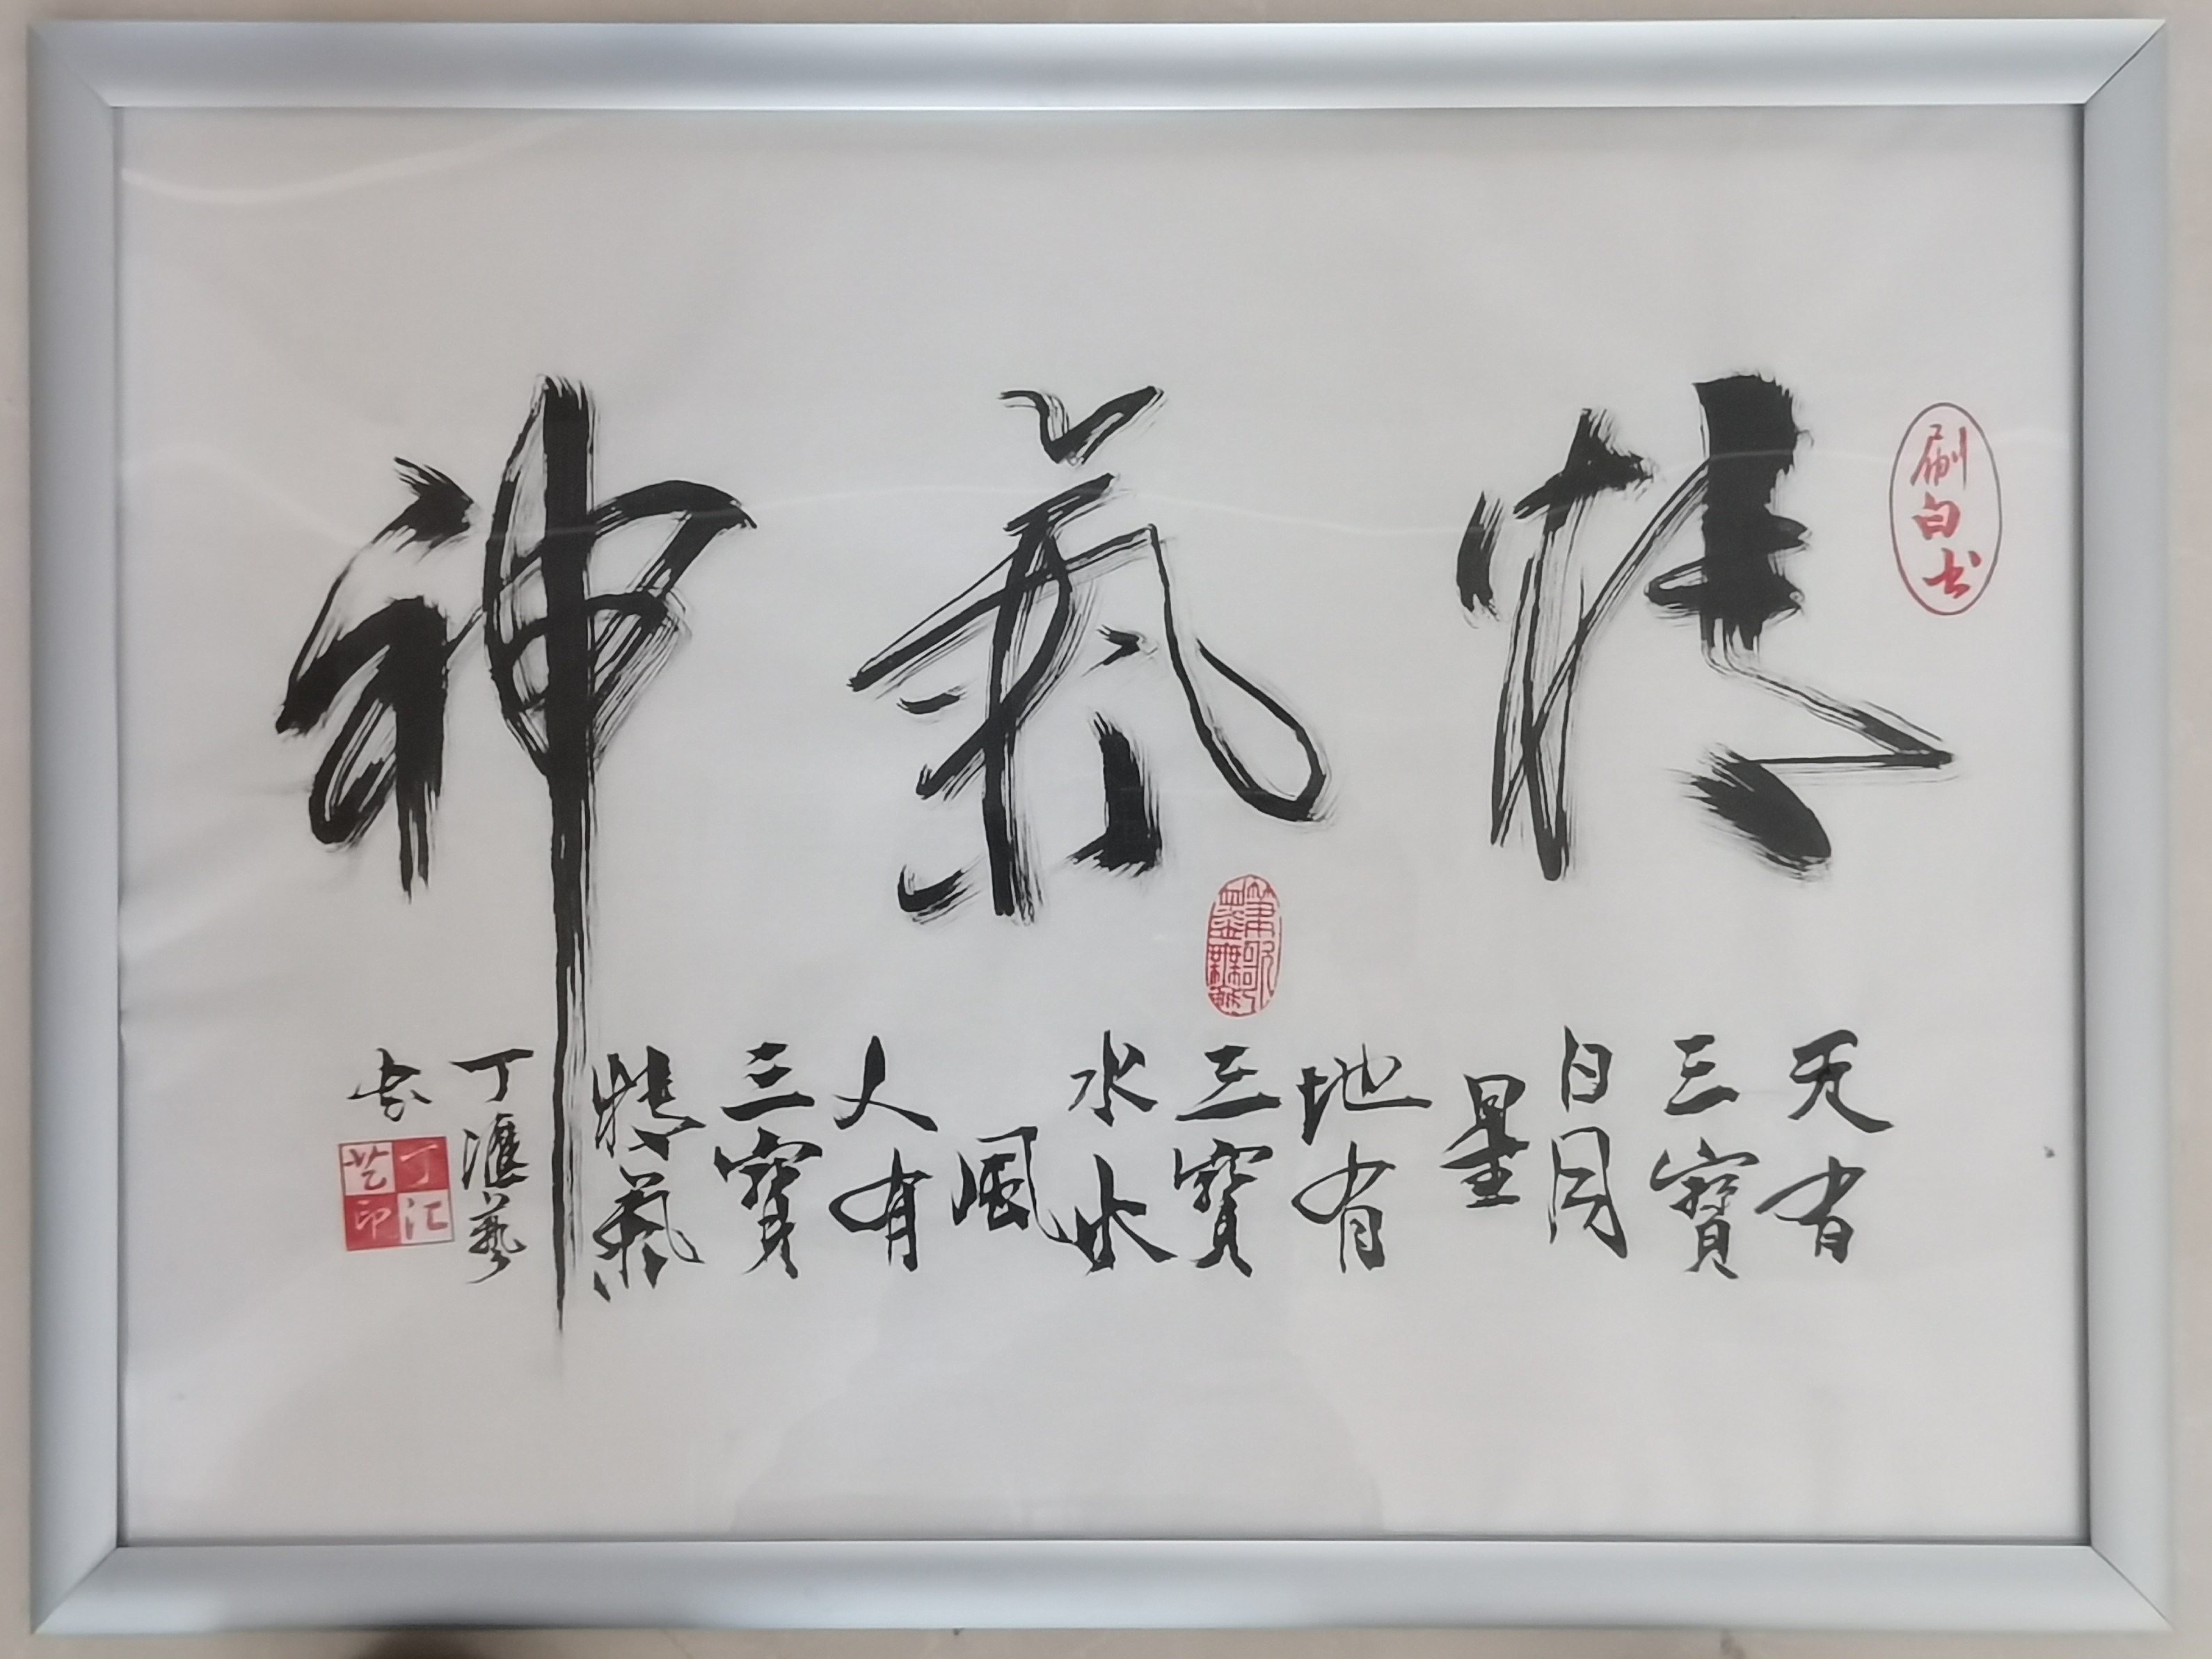 刷白书
精氣神
筆歌墨舞
天有
三寶
日月
星
地有
三寶
水火
風
人有
三寶
精氣
丁滙藝
书
丁汇艺印